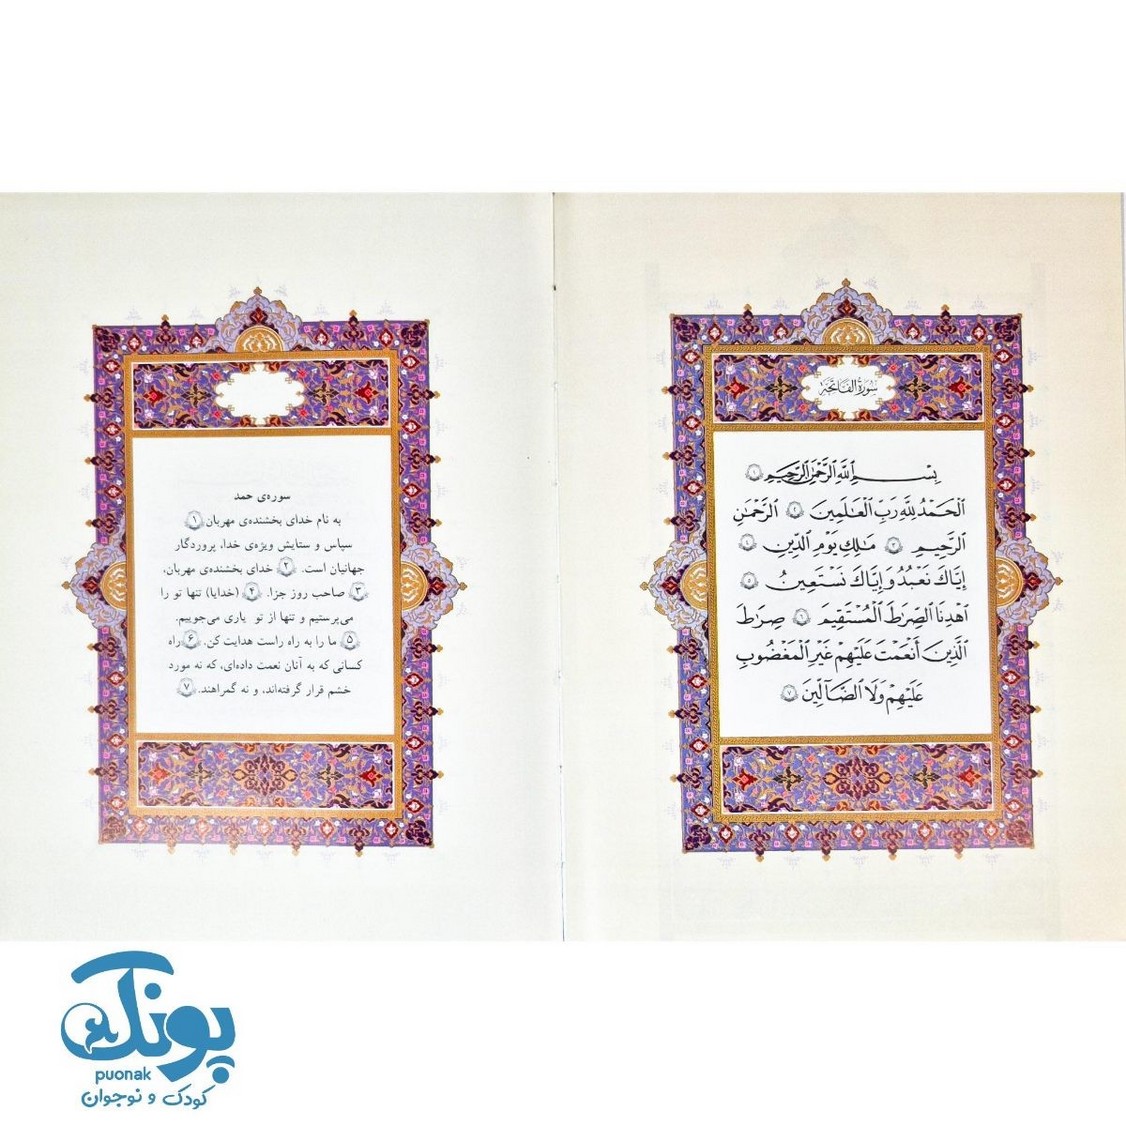 سُورَةُ الفَاتِحَةِ
بِسْمِ ٱللَّهِ ٱلرَّحْمَٰنِ ٱلرَّحِيمِ ١
ٱلْحَمْدُ لِلَّهِ رَبِّ ٱلْعَٰلَمِينَ ٢ ٱلرَّحْمَٰنِ
ٱلرَّحِيمِ ٣ مَٰلِكِ يَوْمِ ٱلدِّينِ ٤
إِيَّاكَ نَعْبُدُ وَإِيَّاكَ نَسْتَعِينُ ٥
ٱهْدِنَا ٱلصِّرَٰطَ ٱلْمُسْتَقِيمَ ٦ صِرَٰطَ
ٱلَّذِينَ أَنْعَمْتَ عَلَيْهِمْ غَيْرِ ٱلْمَغْضُوبِ
عَلَيْهِمْ وَلَا ٱلضَّآلِّينَ ٧
سوره‌ی حمد
به نام خدای بخشنده‌ی مهربان ۱
سپاس و ستایش ویژه‌ی خدا، پروردگار
جهانیان است. ۲ خدای بخشنده‌ی مهربان،
۳ صاحب روز جزا. ۴ (خدایا) تنها تو را
می‌پرستیم و تنها از تو یاری می‌جوییم.
۵ ما را به راه راست هدایت کن. ۶ راه
کسانی که به آنان نعمت داده‌ای، که نه مورد
خشم قرار گرفته‌اند، و نه گمراهند. ۷
پونک
puonak
کودک و نوجوان